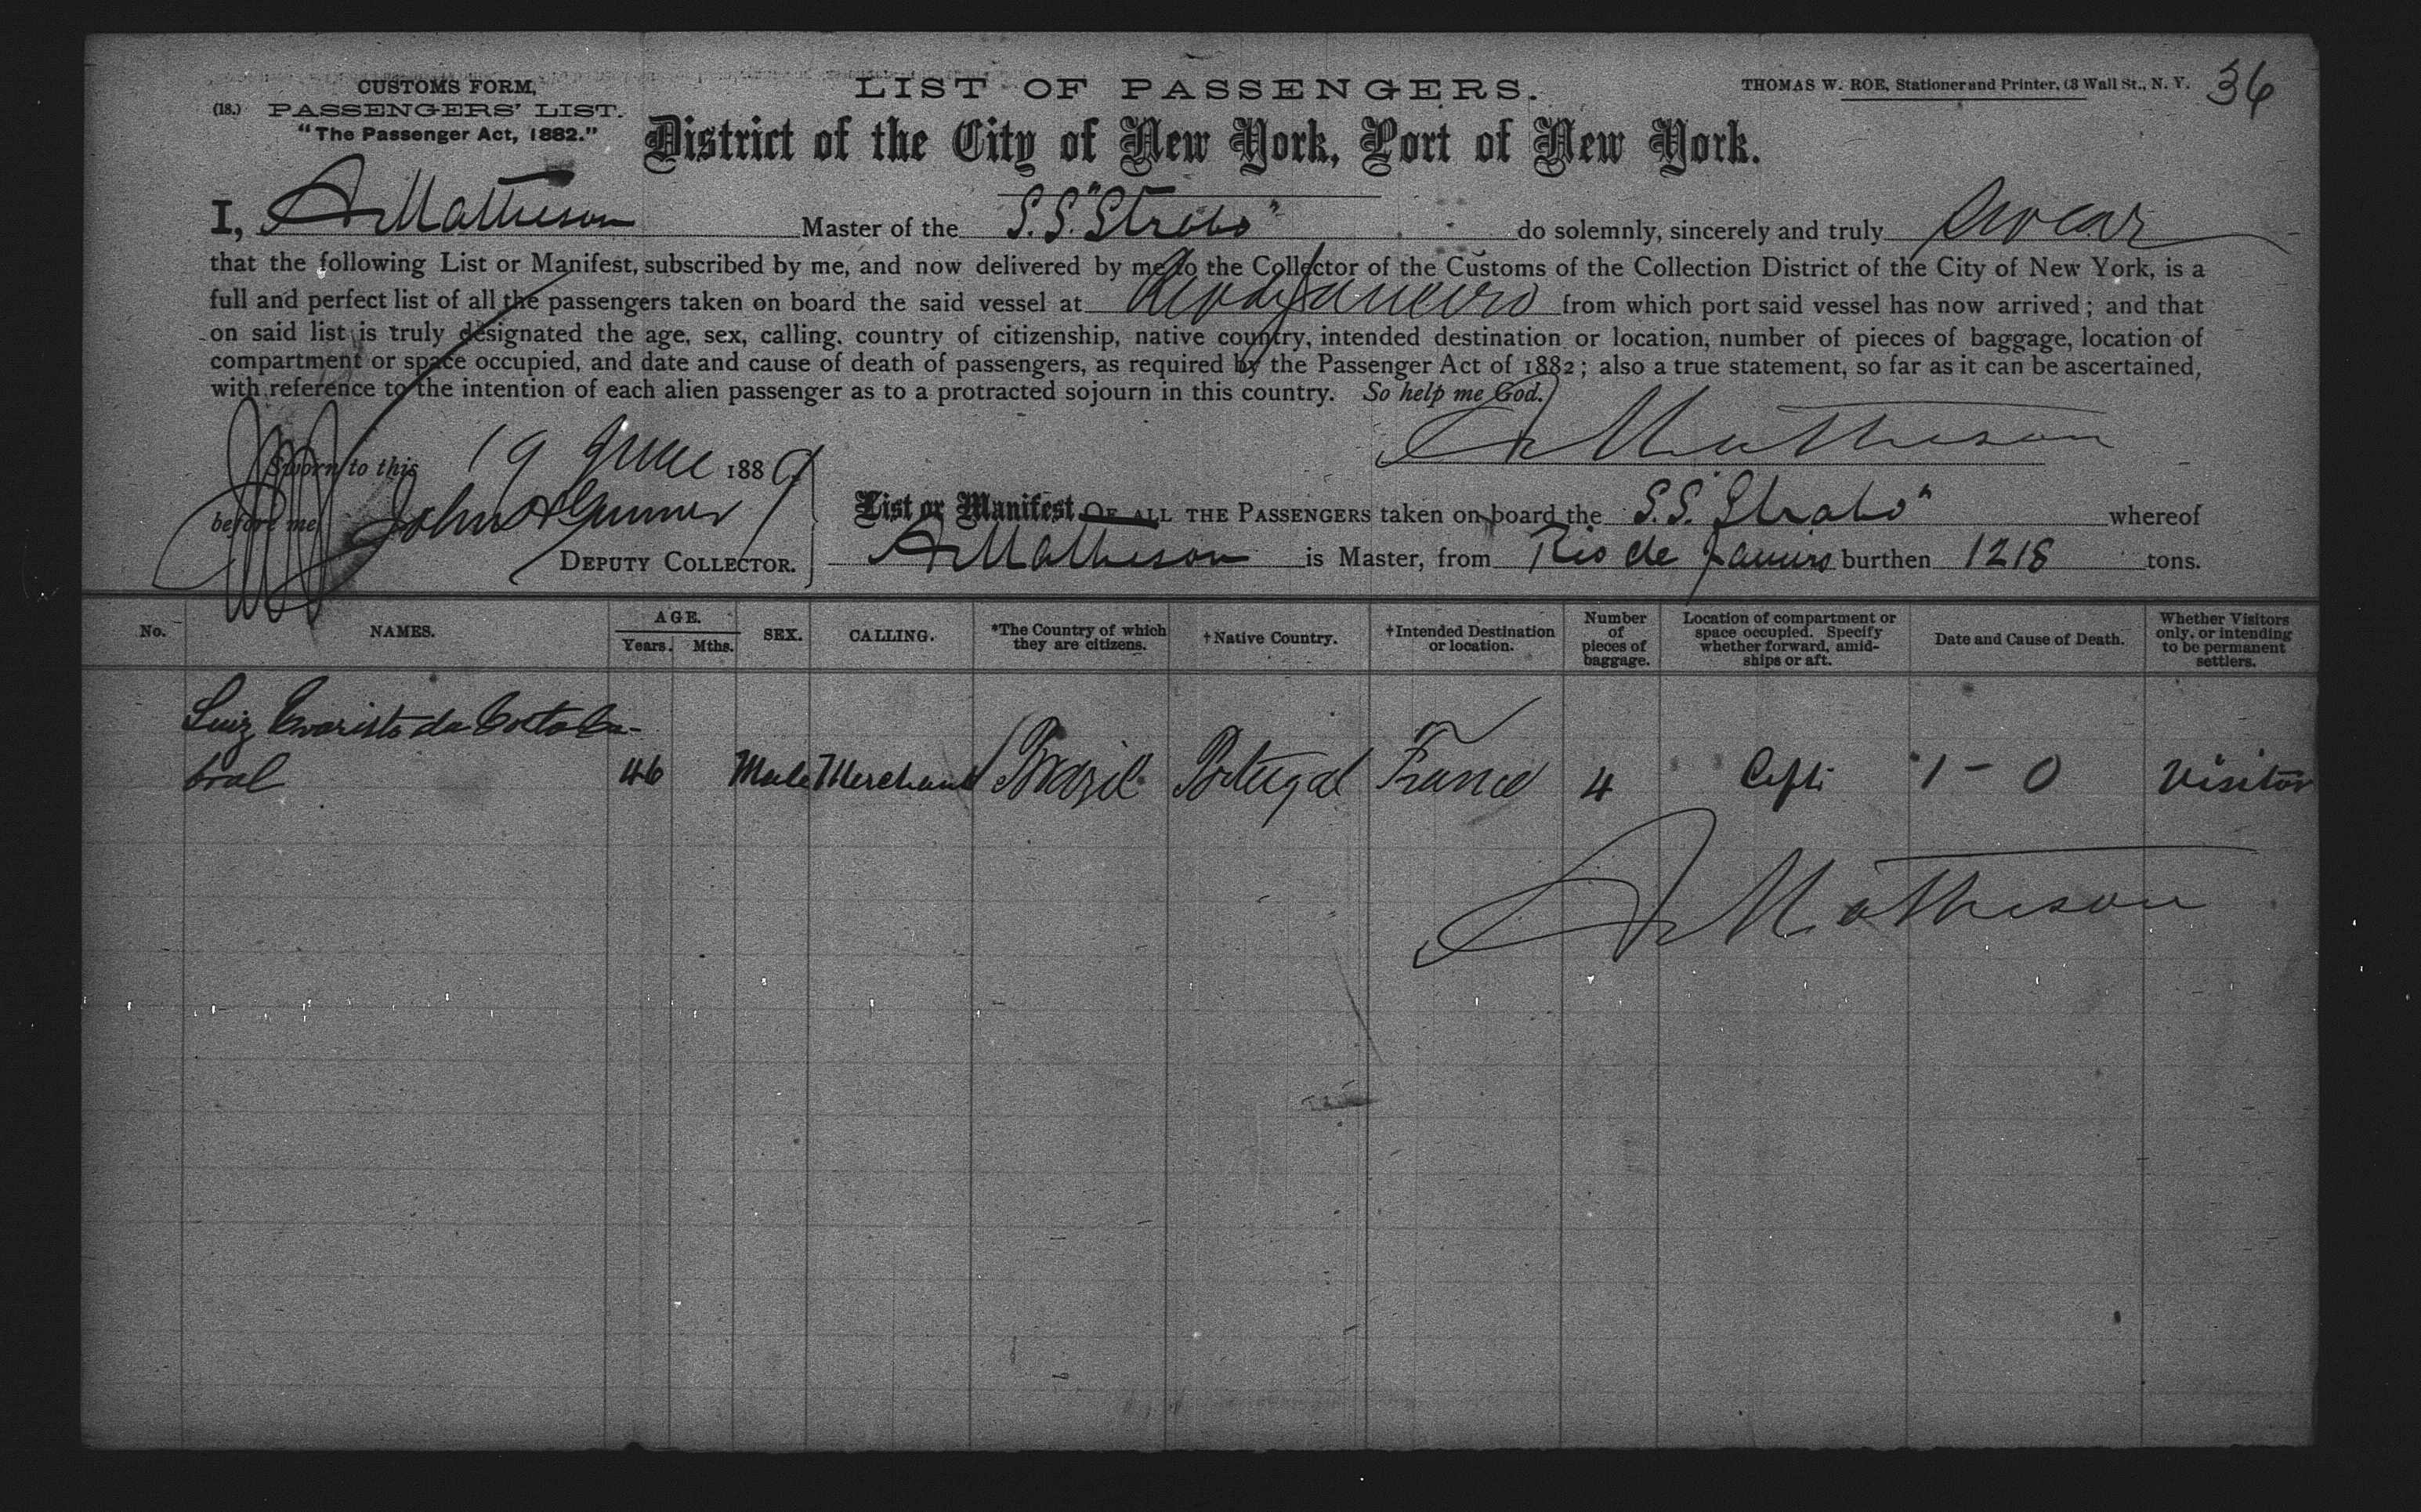 CUSTOMS FORM,
(18.) PASSENGERS' LIST.
"The Passenger Act, 1882."
LIST OF PASSENGERS.
THOMAS W. ROE, Stationer and Printer, 63 Wall St., N. Y.
36
District of the City of New York, Port of New York.
I, A Matheson Master of the S.S. "Strabo" do solemnly, sincerely and truly swear
that the following List or Manifest, subscribed by me, and now delivered by me to the Collector of the Customs of the Collection District of the City of New York, is a
full and perfect list of all the passengers taken on board the said vessel at Rio de Janeiro from which port said vessel has now arrived; and that
on said list is truly designated the age, sex, calling, country of citizenship, native country, intended destination or location, number of pieces of baggage, location of
compartment or space occupied, and date and cause of death of passengers, as required by the Passenger Act of 1882; also a true statement, so far as it can be ascertained,
with reference to the intention of each alien passenger as to a protracted sojourn in this country. So help me God.
A Matheson
Sworn to this 19 June 1889
before me John A
DEPUTY COLLECTOR.
List or Manifest OF ALL THE PASSENGERS taken on board the S.S. "Strabo" whereof
A Matheson is Master, from Rio de Janeiro burthen 1218 tons.
No.
NAMES.
AGE.
Years. Mths.
SEX.
CALLING.
*The Country of which they are citizens.
†Native Country.
†Intended Destination or location.
Number of pieces of baggage.
Location of compartment or space occupied. Specify whether forward, amidships or aft.
Date and Cause of Death.
Whether Visitors only, or intending to be permanent settlers.
Luiz Evaristo da Costa Ca-
bral 46 Male Merchant Brazil Portugal France 4 1 - 0 Visitor
A Matheson